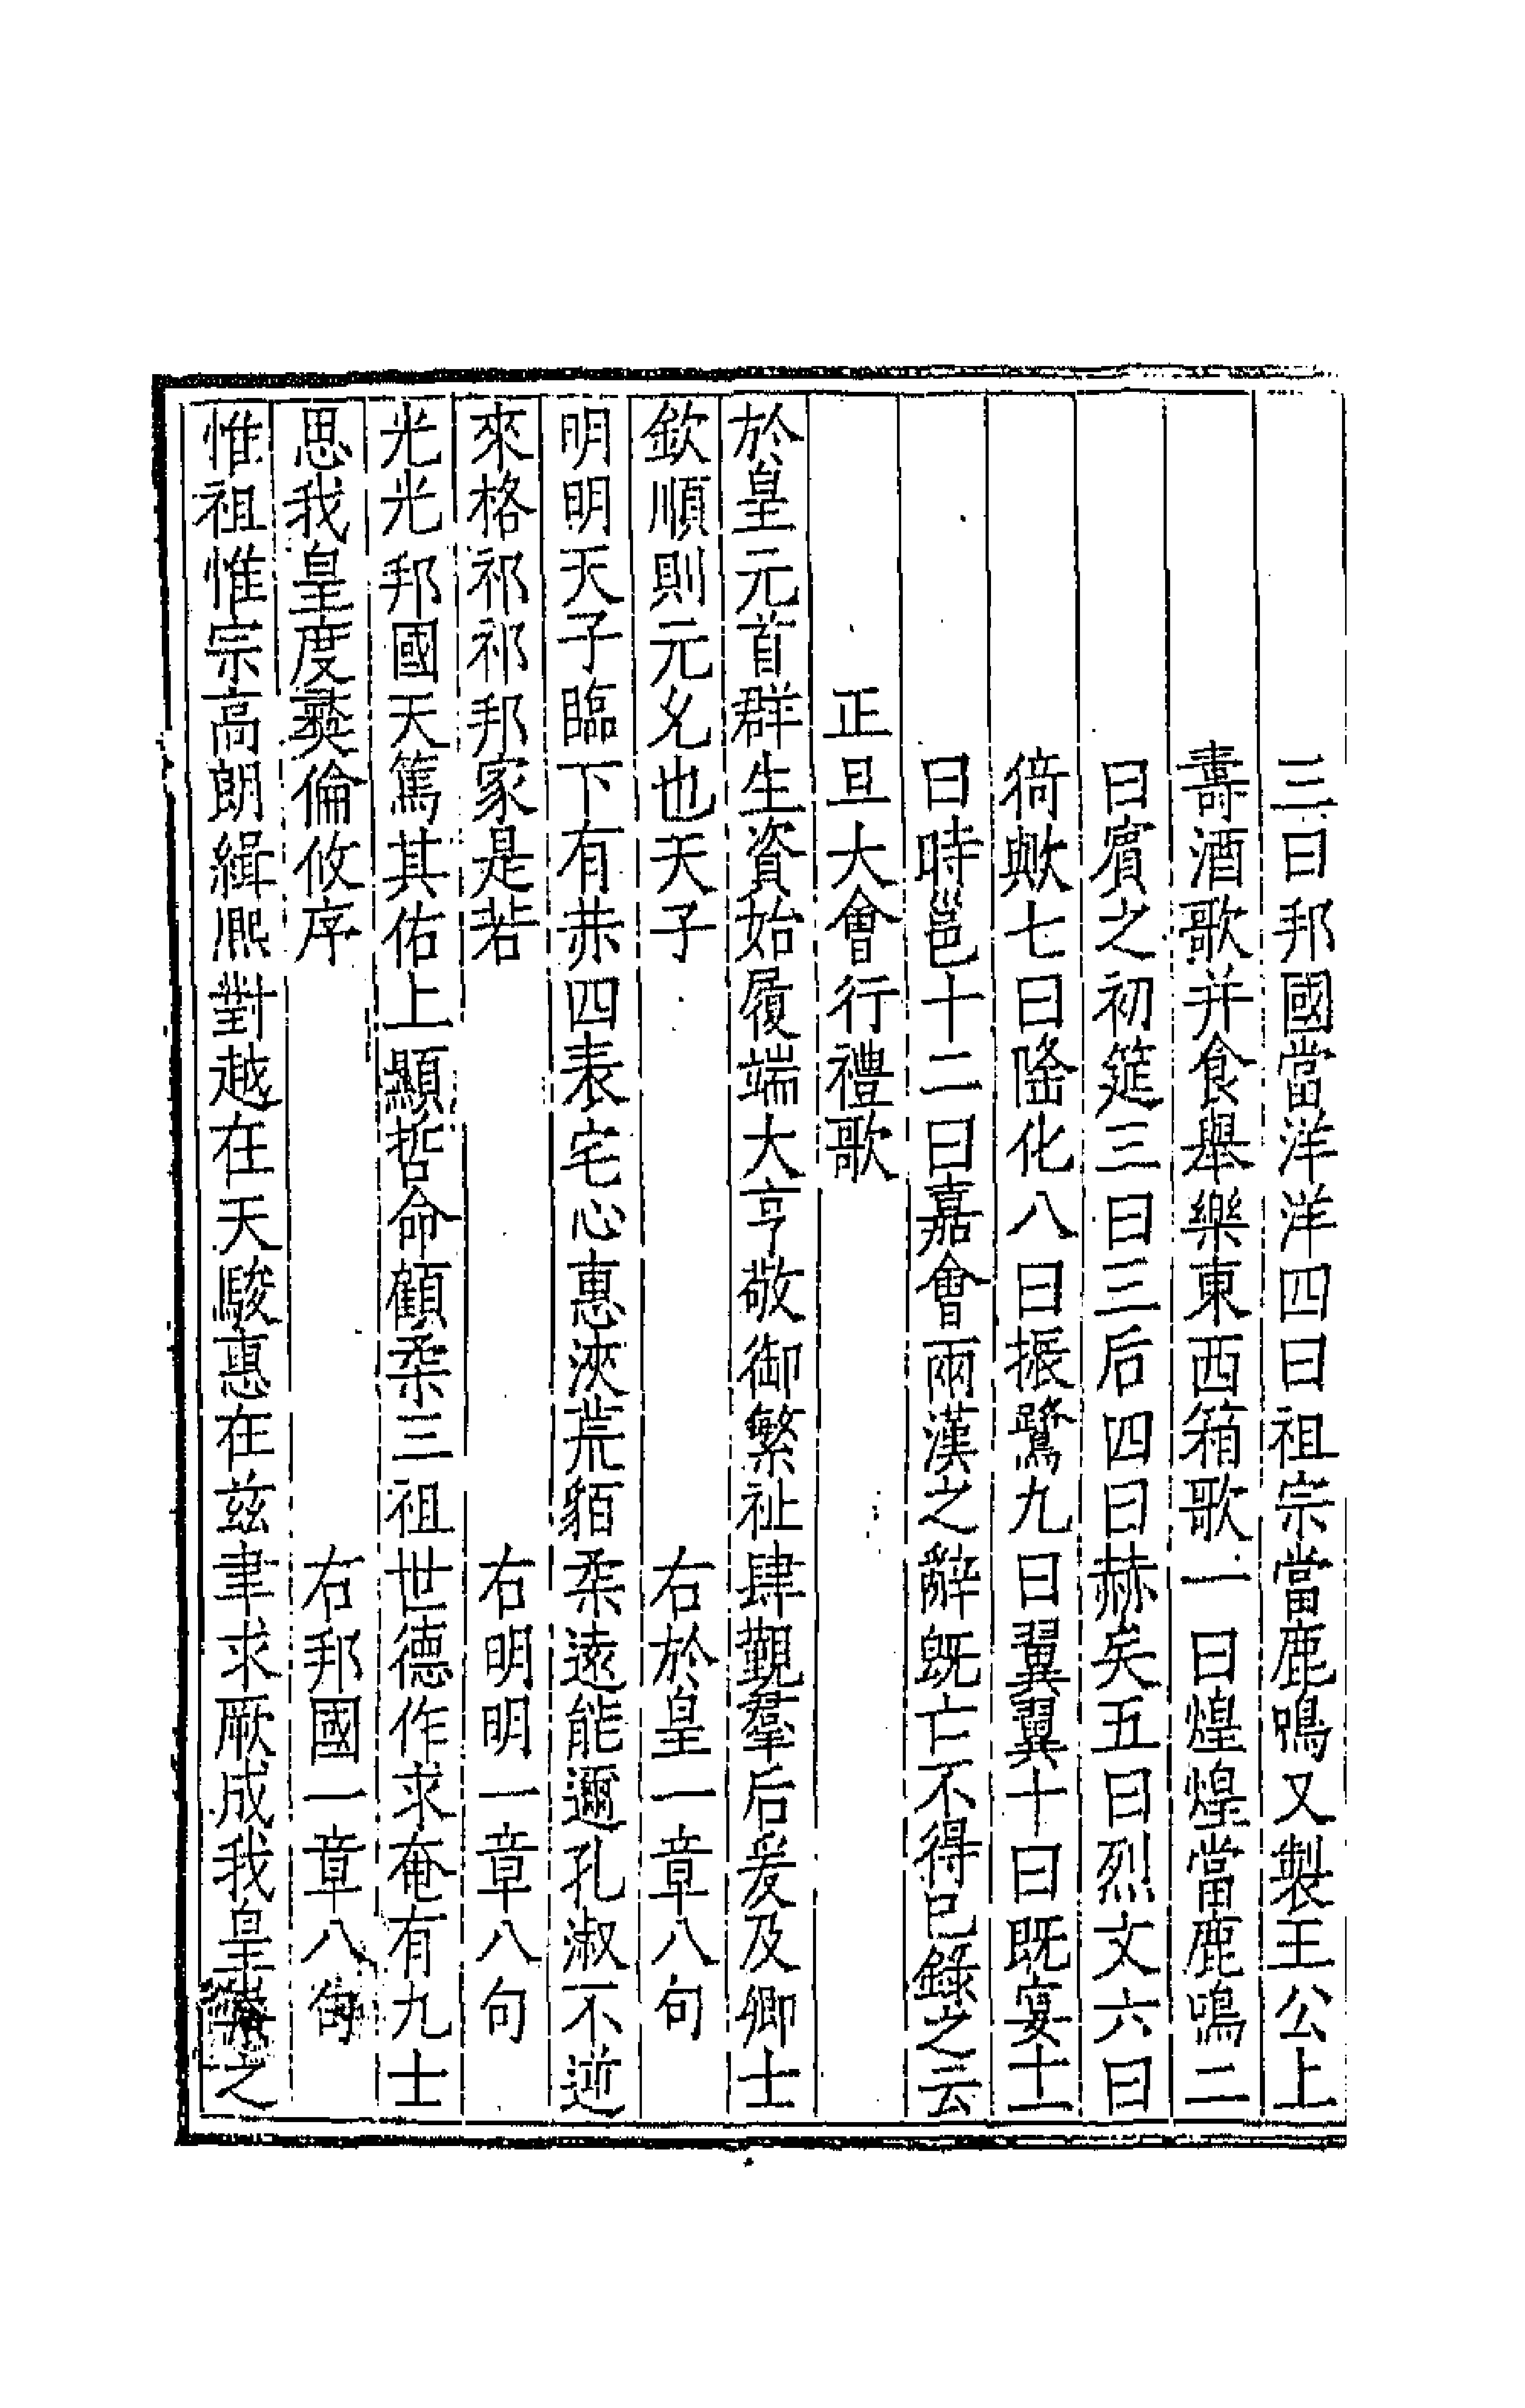 三曰邦國當洋洋四曰祖宗當鹿鳴又製王公上
壽酒歌并食舉樂東西箱歌一曰煌煌當鹿鳴二
曰賓之初筵三曰三后四曰赫矣五曰烈文六曰
猗歟七曰隆化八曰振鷺九曰翼翼十曰既宴十一
曰時邕十二曰嘉會兩漢之辭既亡不得已錄之云
正旦大會行禮歌
於皇元首群生資始履端大亨敬御繁祉肆覲羣后爰及卿士
欽順則元允也天子
右於皇一章八句
明明天子臨下有恭四表宅心惠浹荒貊柔遠能邇孔淑不逆
來格祁祁邦家是若
右明明一章八句
光光邦國天篤其佑丕顯哲命顧柔三祖世德作求奄有九土
思我皇度彝倫攸序
右邦國一章八句
惟祖惟宗高朗緝熙對越在天駿惠在茲聿求厥成我皇之